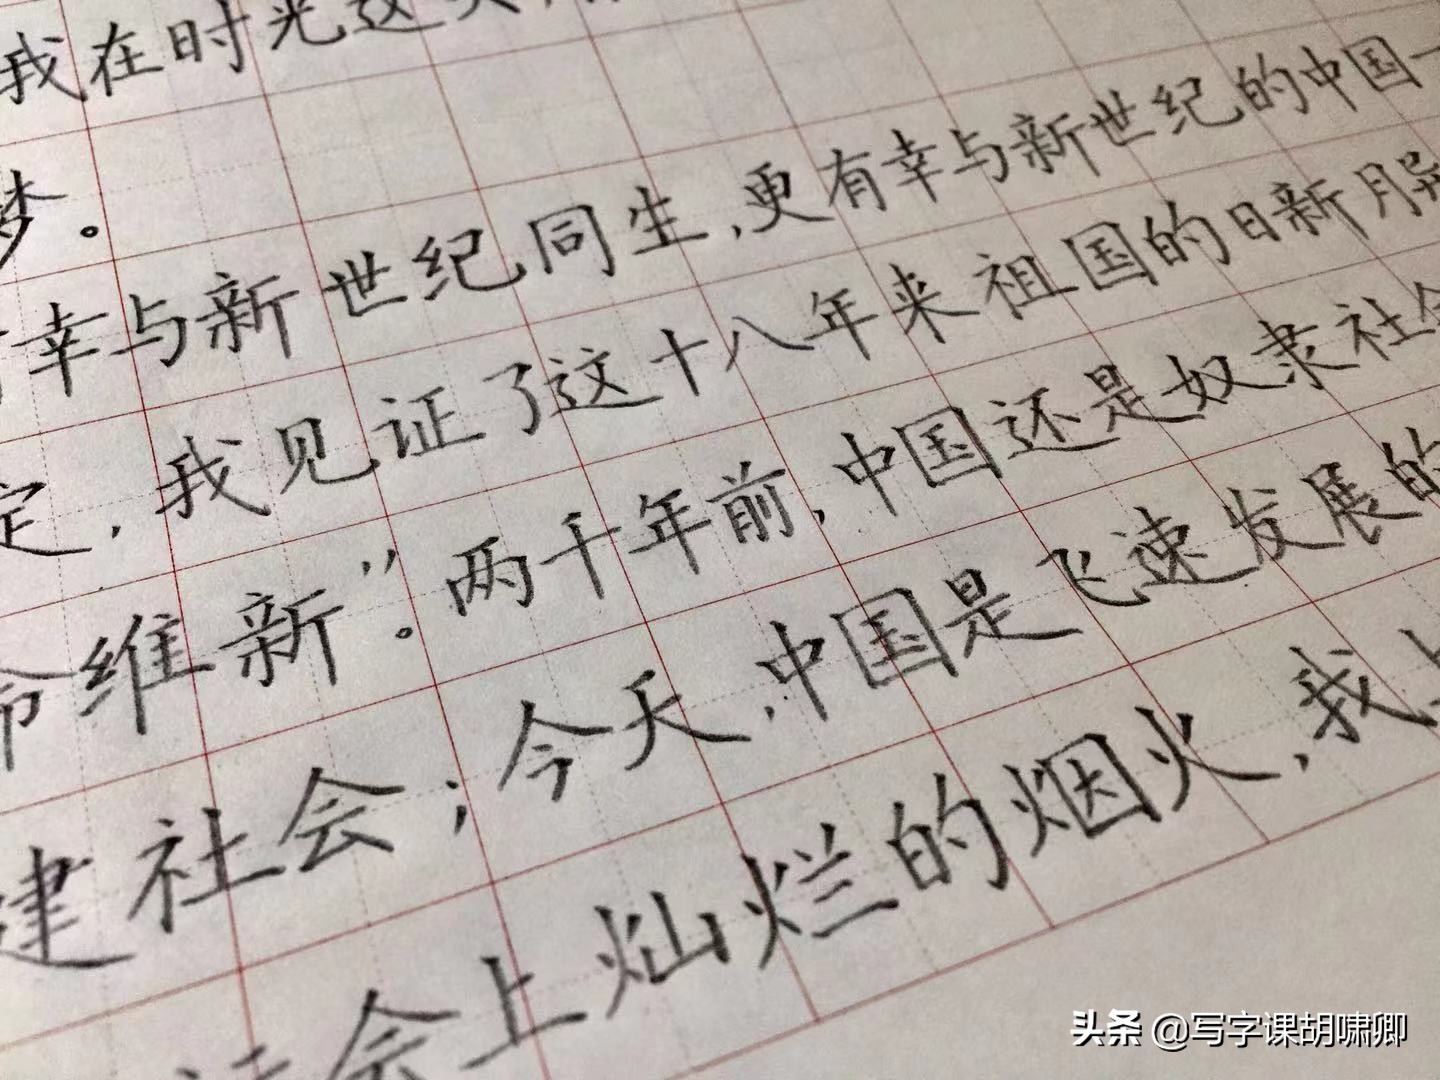 我在时光这
梦。
幸与新世纪同生,更有幸与新世纪的中国一
定,我见证了这十八年来祖国的日新月异
命维新”。两千年前,中国还是奴隶社会
建社会;今天,中国是飞速发展的
社会上灿烂的烟火,我上
头条 @写字课胡啸卿